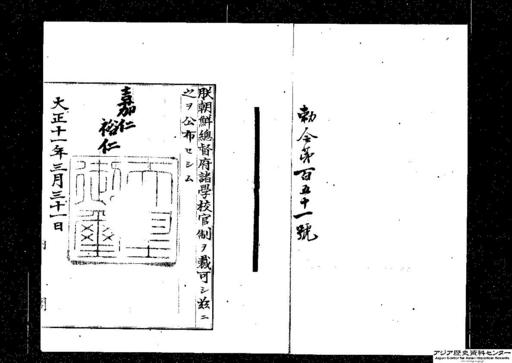 勅令第百五十一號
朕朝鮮總督府諸學校官制ヲ裁可シ茲ニ
之ヲ公布セシム
嘉仁
裕仁
天皇御璽
大正十一年三月三十一日
アジア歴史資料センター
Japan Center for Asian Historical Records